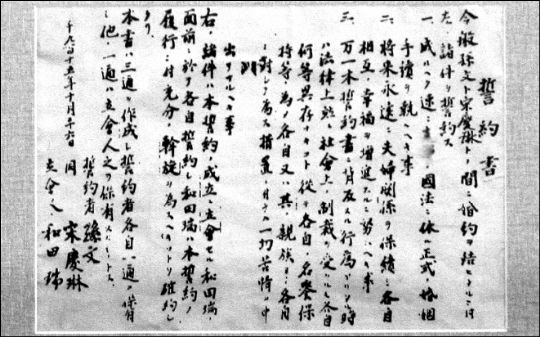 誓約書
今般孫文ト宋慶琳トノ間ニ婚約ヲ結ヒタルニ付
左ノ諸件ヲ誓約ス
一、成ルヘク速ニ支那國法ニ依ル正式ノ婚姻
手續ヲ執ルヘキ事
二、將来永遠ニ夫婦関係ヲ保續シ各自
相互ノ幸福ヲ増進スルニ努ムヘキ事
三、万一本誓約書ニ背反スル行為アリタル時
ハ法律上並ニ社會上ノ制裁ヲ受クルモ各自
何等異存ナキコト従テ各自ノ名誉保
持等ノ為メ各自又ハ其ノ親族ヨリ各自
ニ對シ為ス措置ニ付テハ一切苦情ヲ申
出サルヘキ事
右ノ諸件ハ本誓約ノ成立ニ立會セル和田瑞ノ
面前ニ於テ各自誓約シ和田瑞ハ本誓約ノ
履行ニ付充分ノ斡旋ヲ為スヘキコトヲ確約シ
タリ
本書ハ三通ヲ作成シ誓約者各自ハ一通ヲ保持
シ他ノ一通ハ立會人之ヲ保有スルモノトス
千九百十五年十月廿六日
誓約者 孫文
同 宋慶琳
立會人 和田瑞